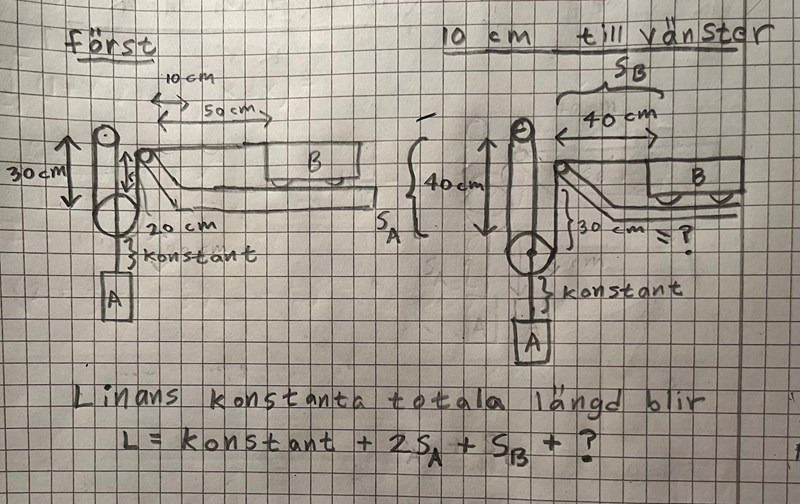 först
10 cm till vänster
10 cm
50 cm
30 cm
B
20 cm
} konstant
A
S_B
40 cm
S_A
40 cm
B
} 30 cm = ?
} konstant
A
Linans konstanta totala längd blir
L = konstant + 2S_A + S_B + ?